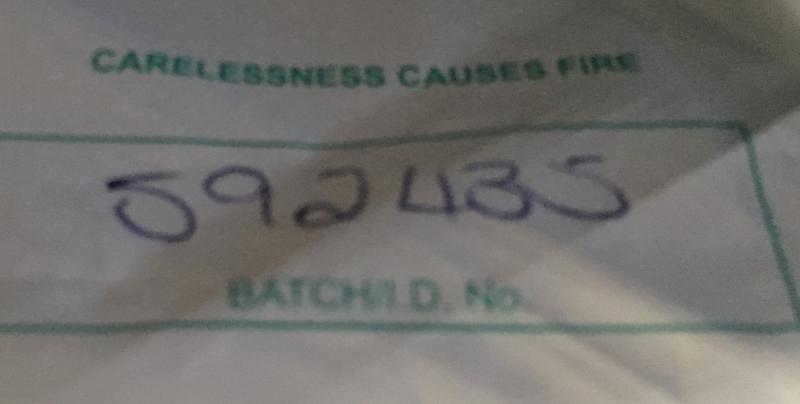 CARELESSNESS CAUSES FIRE
592435
BATCH/I.D. No.